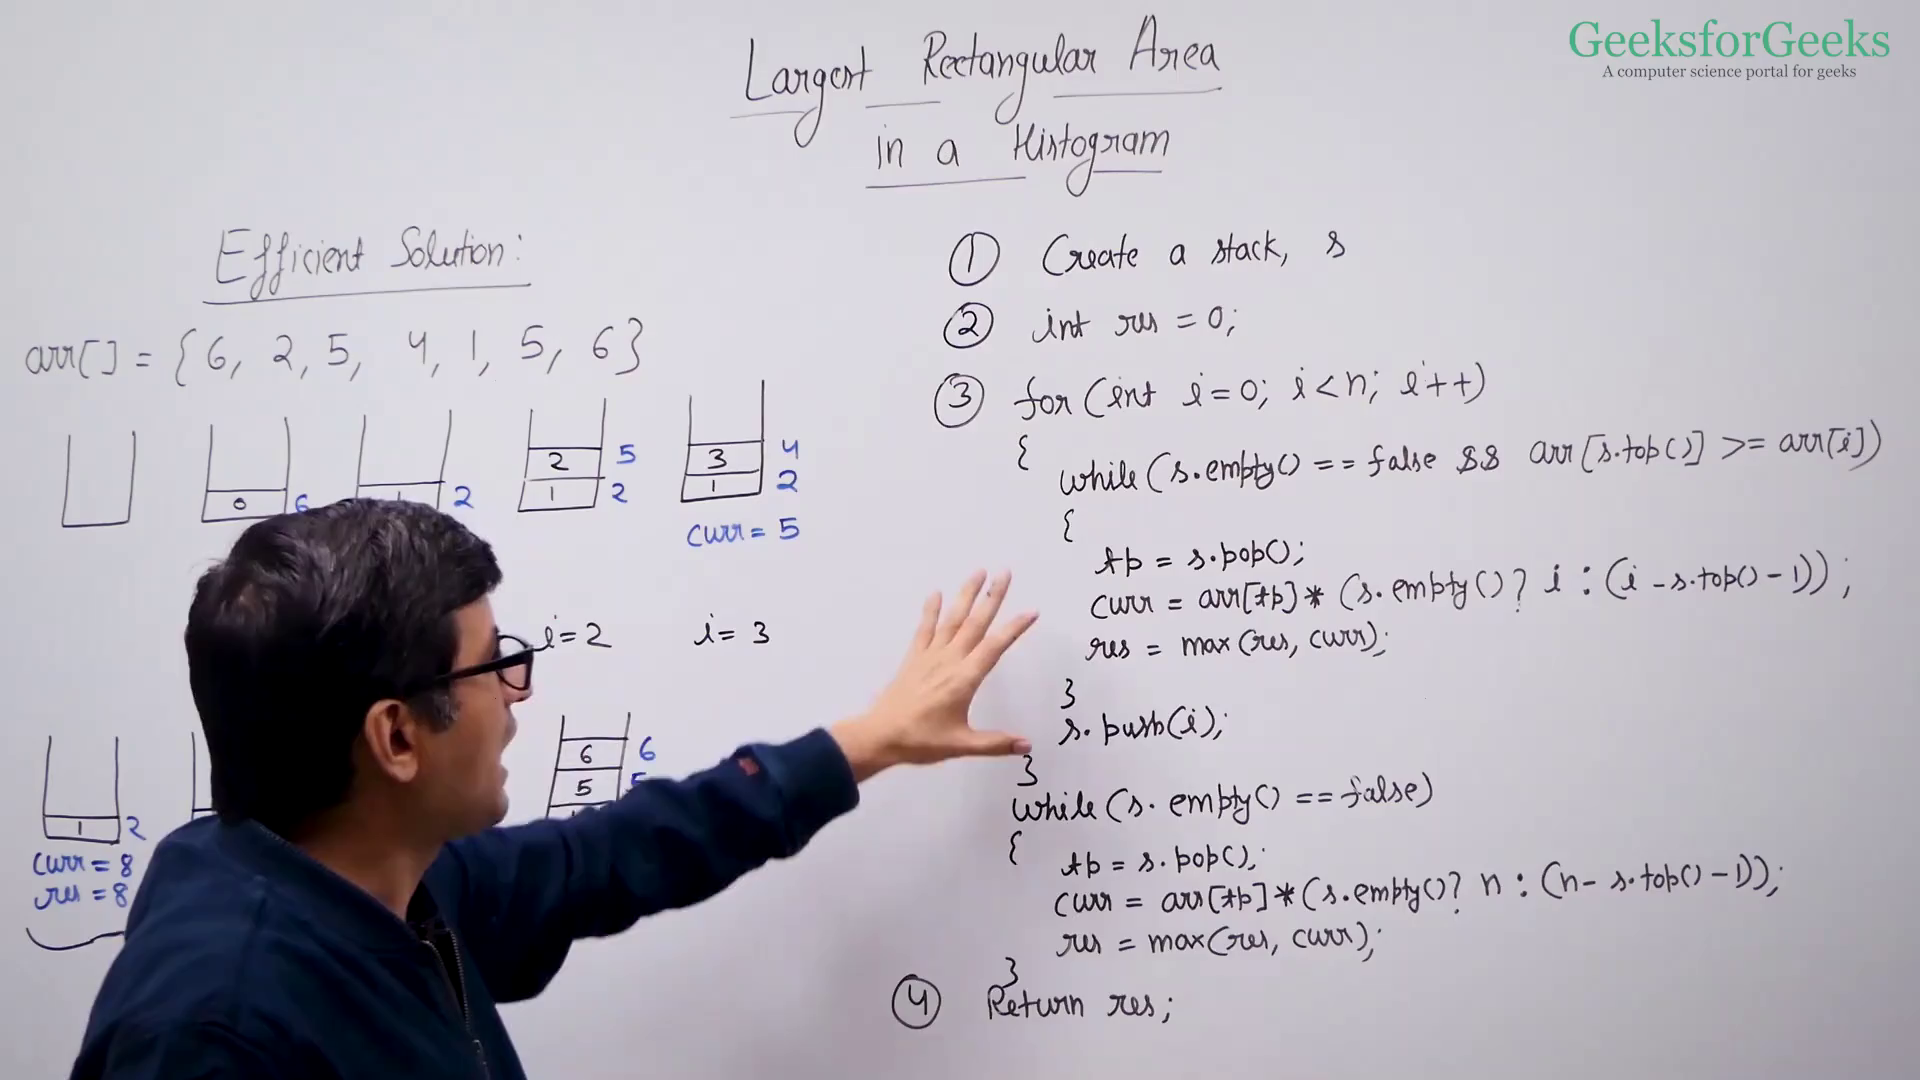 GeeksforGeeks
A computer science portal for geeks
Largest Rectangular Area
in a Histogram
Efficient Solution:
arr[] = {6, 2, 5, 4, 1, 5, 6}
0 6
2
2 5
1 2
3 4
1 2
curr = 5
i=2
i= 3
1 2
curr = 8
res = 8
6 6
5 5
① Create a stack, s
② int res = 0;
③ for (int i=0; i<n; i++)
{
while (s.empty() == false && arr[s.top()] >= arr[i])
{
tp = s.pop();
curr = arr[tp] * (s.empty() ? i : (i - s.top() - 1));
res = max(res, curr);
}
s.push(i);
}
while (s.empty() == false)
{
tp = s.pop();
curr = arr[tp] * (s.empty() ? n : (n - s.top() - 1));
res = max(res, curr);
}
④ Return res;